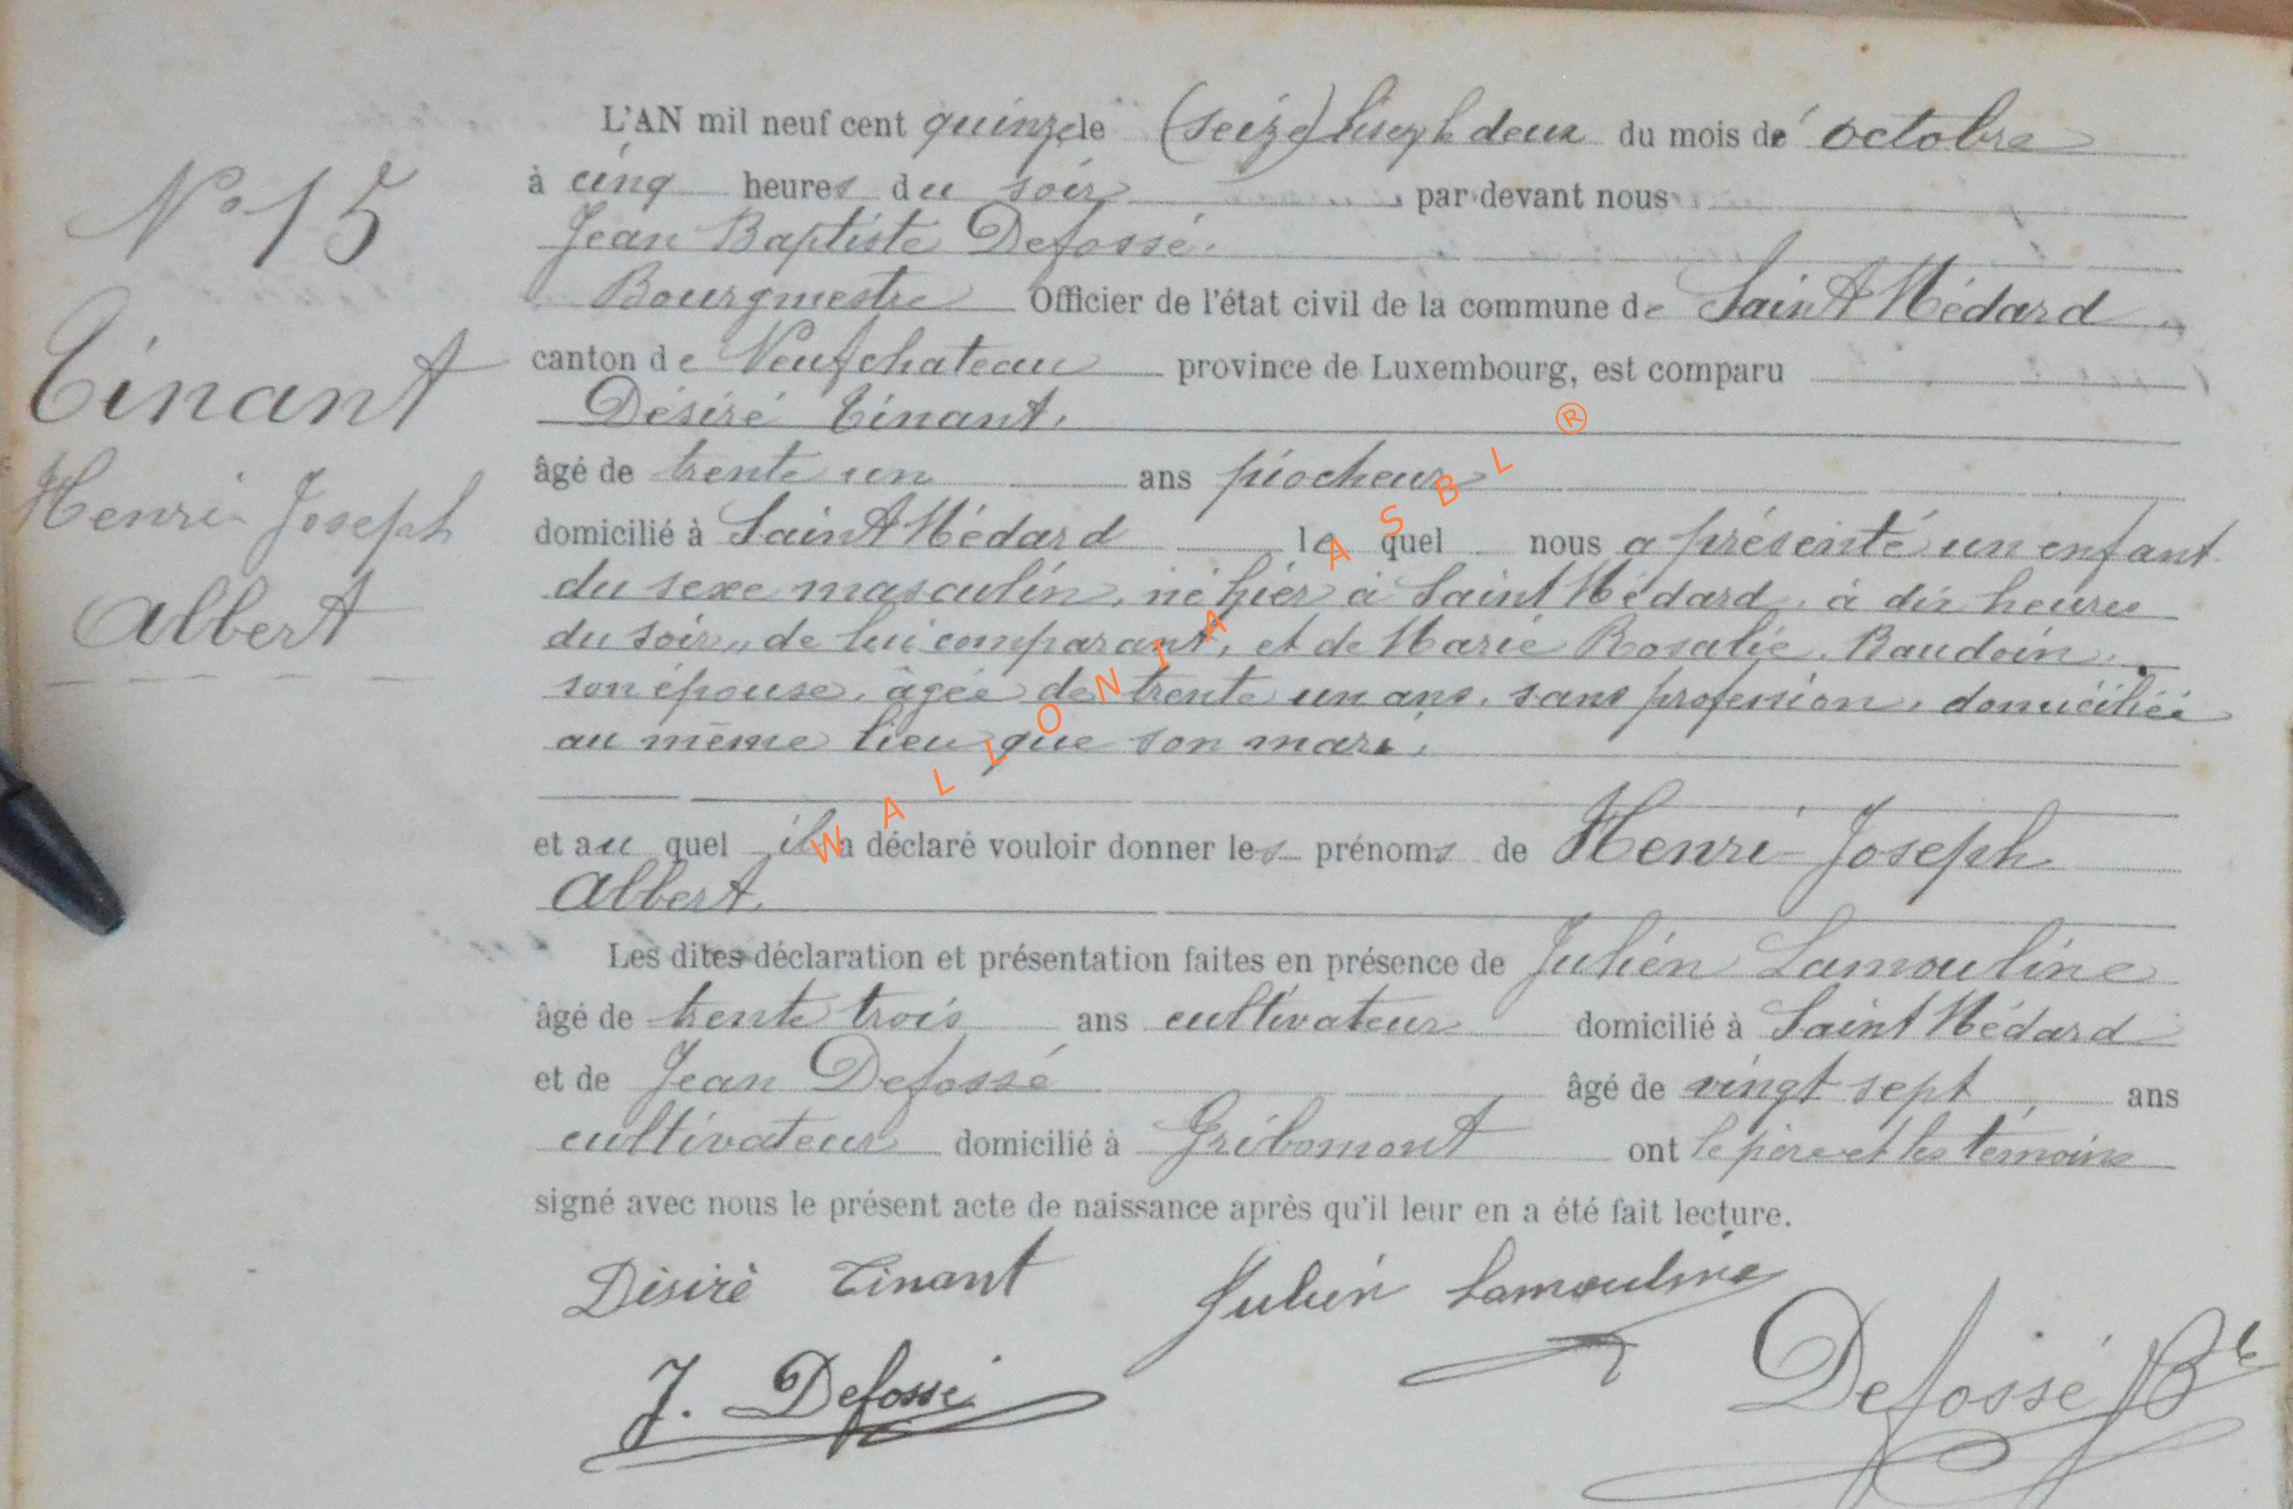 L'AN mil neuf cent quinze le (seize) lisez le deux du mois de octobre
à cinq heures du soir par devant nous
Jean Baptiste Defossé.
Bourgmestre Officier de l'état civil de la commune de Saint Médard
canton de Neufchateau province de Luxembourg, est comparu
Désiré Tinant,
âgé de trente un ans piocheur
domicilié à Saint Médard le quel nous a présenté un enfant
du sexe masculin, né hier à Saint Médard, à dix heures
du soir, de lui comparant, et de Marie Rosalie Baudoin,
son épouse, âgée de trente un ans, sans profession, domiciliée
au même lieu que son mari,
et au quel il a déclaré vouloir donner les prénoms de Henri Joseph
Albert.
Les dites déclaration et présentation faites en présence de Julien Lamouline
âgé de trente trois ans cultivateur domicilié à Saint Médard
et de Jean Defossé âgé de vingt sept ans
cultivateur domicilié à Gribomont ont le père et les témoins
signé avec nous le présent acte de naissance après qu'il leur en a été fait lecture.
Désiré Tinant Julien Lamouline
J. Defossé Defossé JBte
N° 15
Tinant
Henri Joseph
Albert
WALLONIA ASBL ®